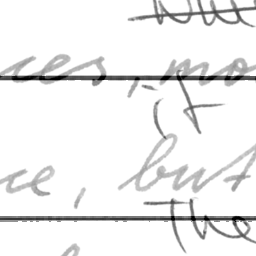 ces, mo
if
ce, but
The